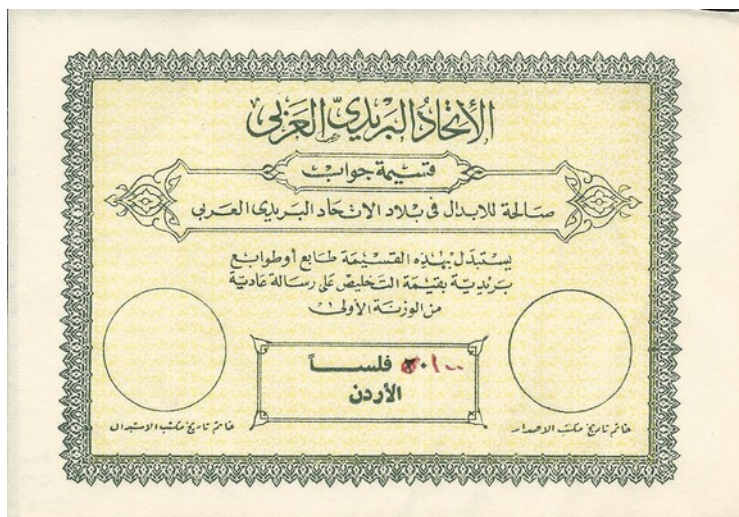 الاتحاد البريدي العربي
قسيمة جواب
صالحة للابدال فى بلاد الاتحاد البريدى العربى
يستبدل بهذه القسيمة طابع أو طوابع
بريدية بقيمة التخليص على رسالة عادية
من الوزنة الأولى
١٠٠ ٢٠ فلساً
الأردن
خاتم تاريخ مكتب الاستبدال
خاتم تاريخ مكتب الاصدار